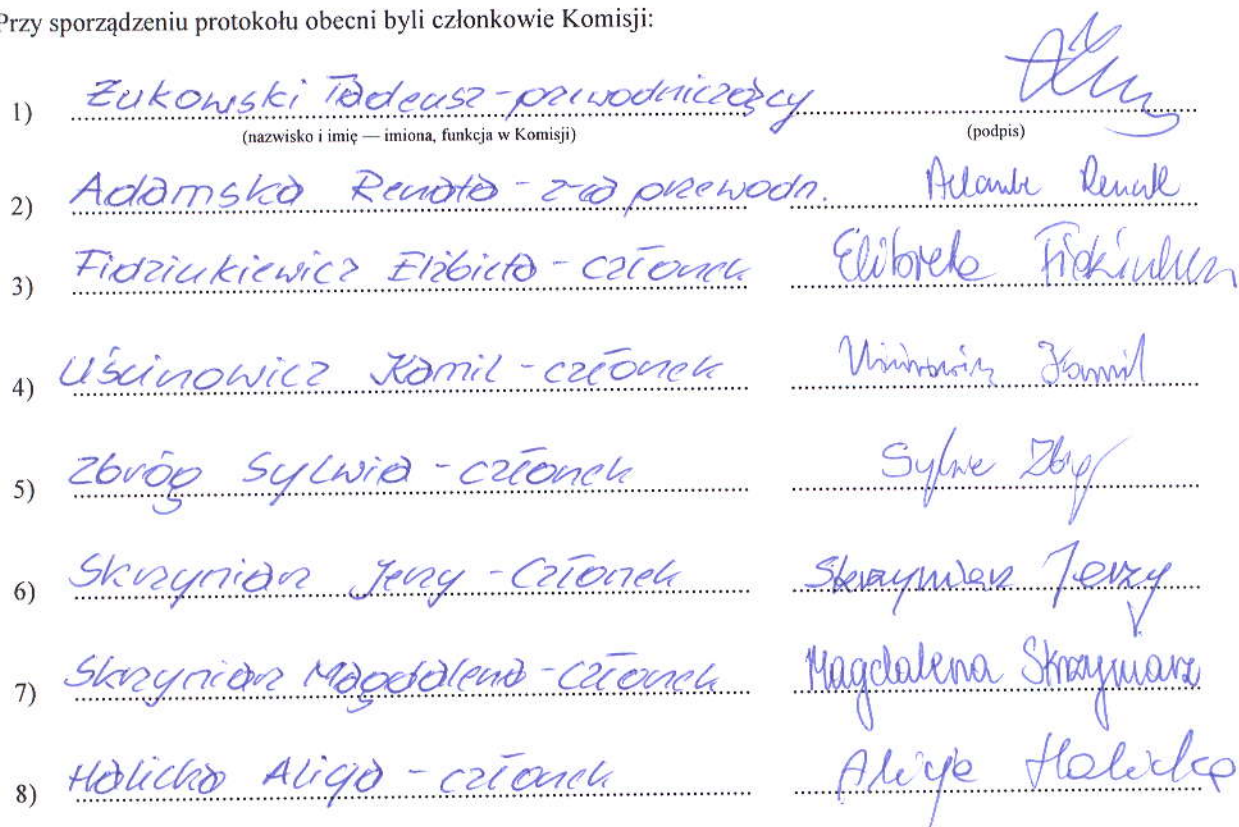 Przy sporządzeniu protokołu obecni byli członkowie Komisji:
1) Żukowski Tadeusz - przewodniczący
(nazwisko i imię — imiona, funkcja w Komisji) (podpis)
2) Adamska Renata - z-ca przewodn. Adamska Renata
3) Fidziukiewicz Elżbieta - członek Elżbieta Fidziukiewicz
4) Uścinowicz Kamil - członek Uścinowicz Kamil
5) Zbróg Sylwia - członek Sylwia Zbróg
6) Skrzyniarz Jerzy - Członek Skrzyniarz Jerzy
7) Skrzyniarz Magdalena - Członek Magdalena Skrzyniarz
8) Halicka Alicja - członek Alicja Halicka